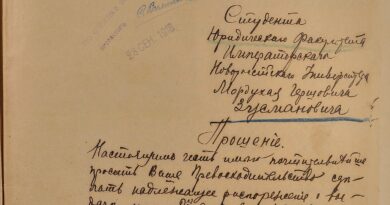 28 СЕН 1918
Студента
Юридическаго Факультета
Императорскаго
Новороссійскаго Университета
Мордуха Гершовича
Зусмановича
Прошеніе.
Настоящимъ честь имѣю почтительнѣйше
просить Ваше Превосходительство сдѣ-
лать надлежащее распоряженіе о вы-